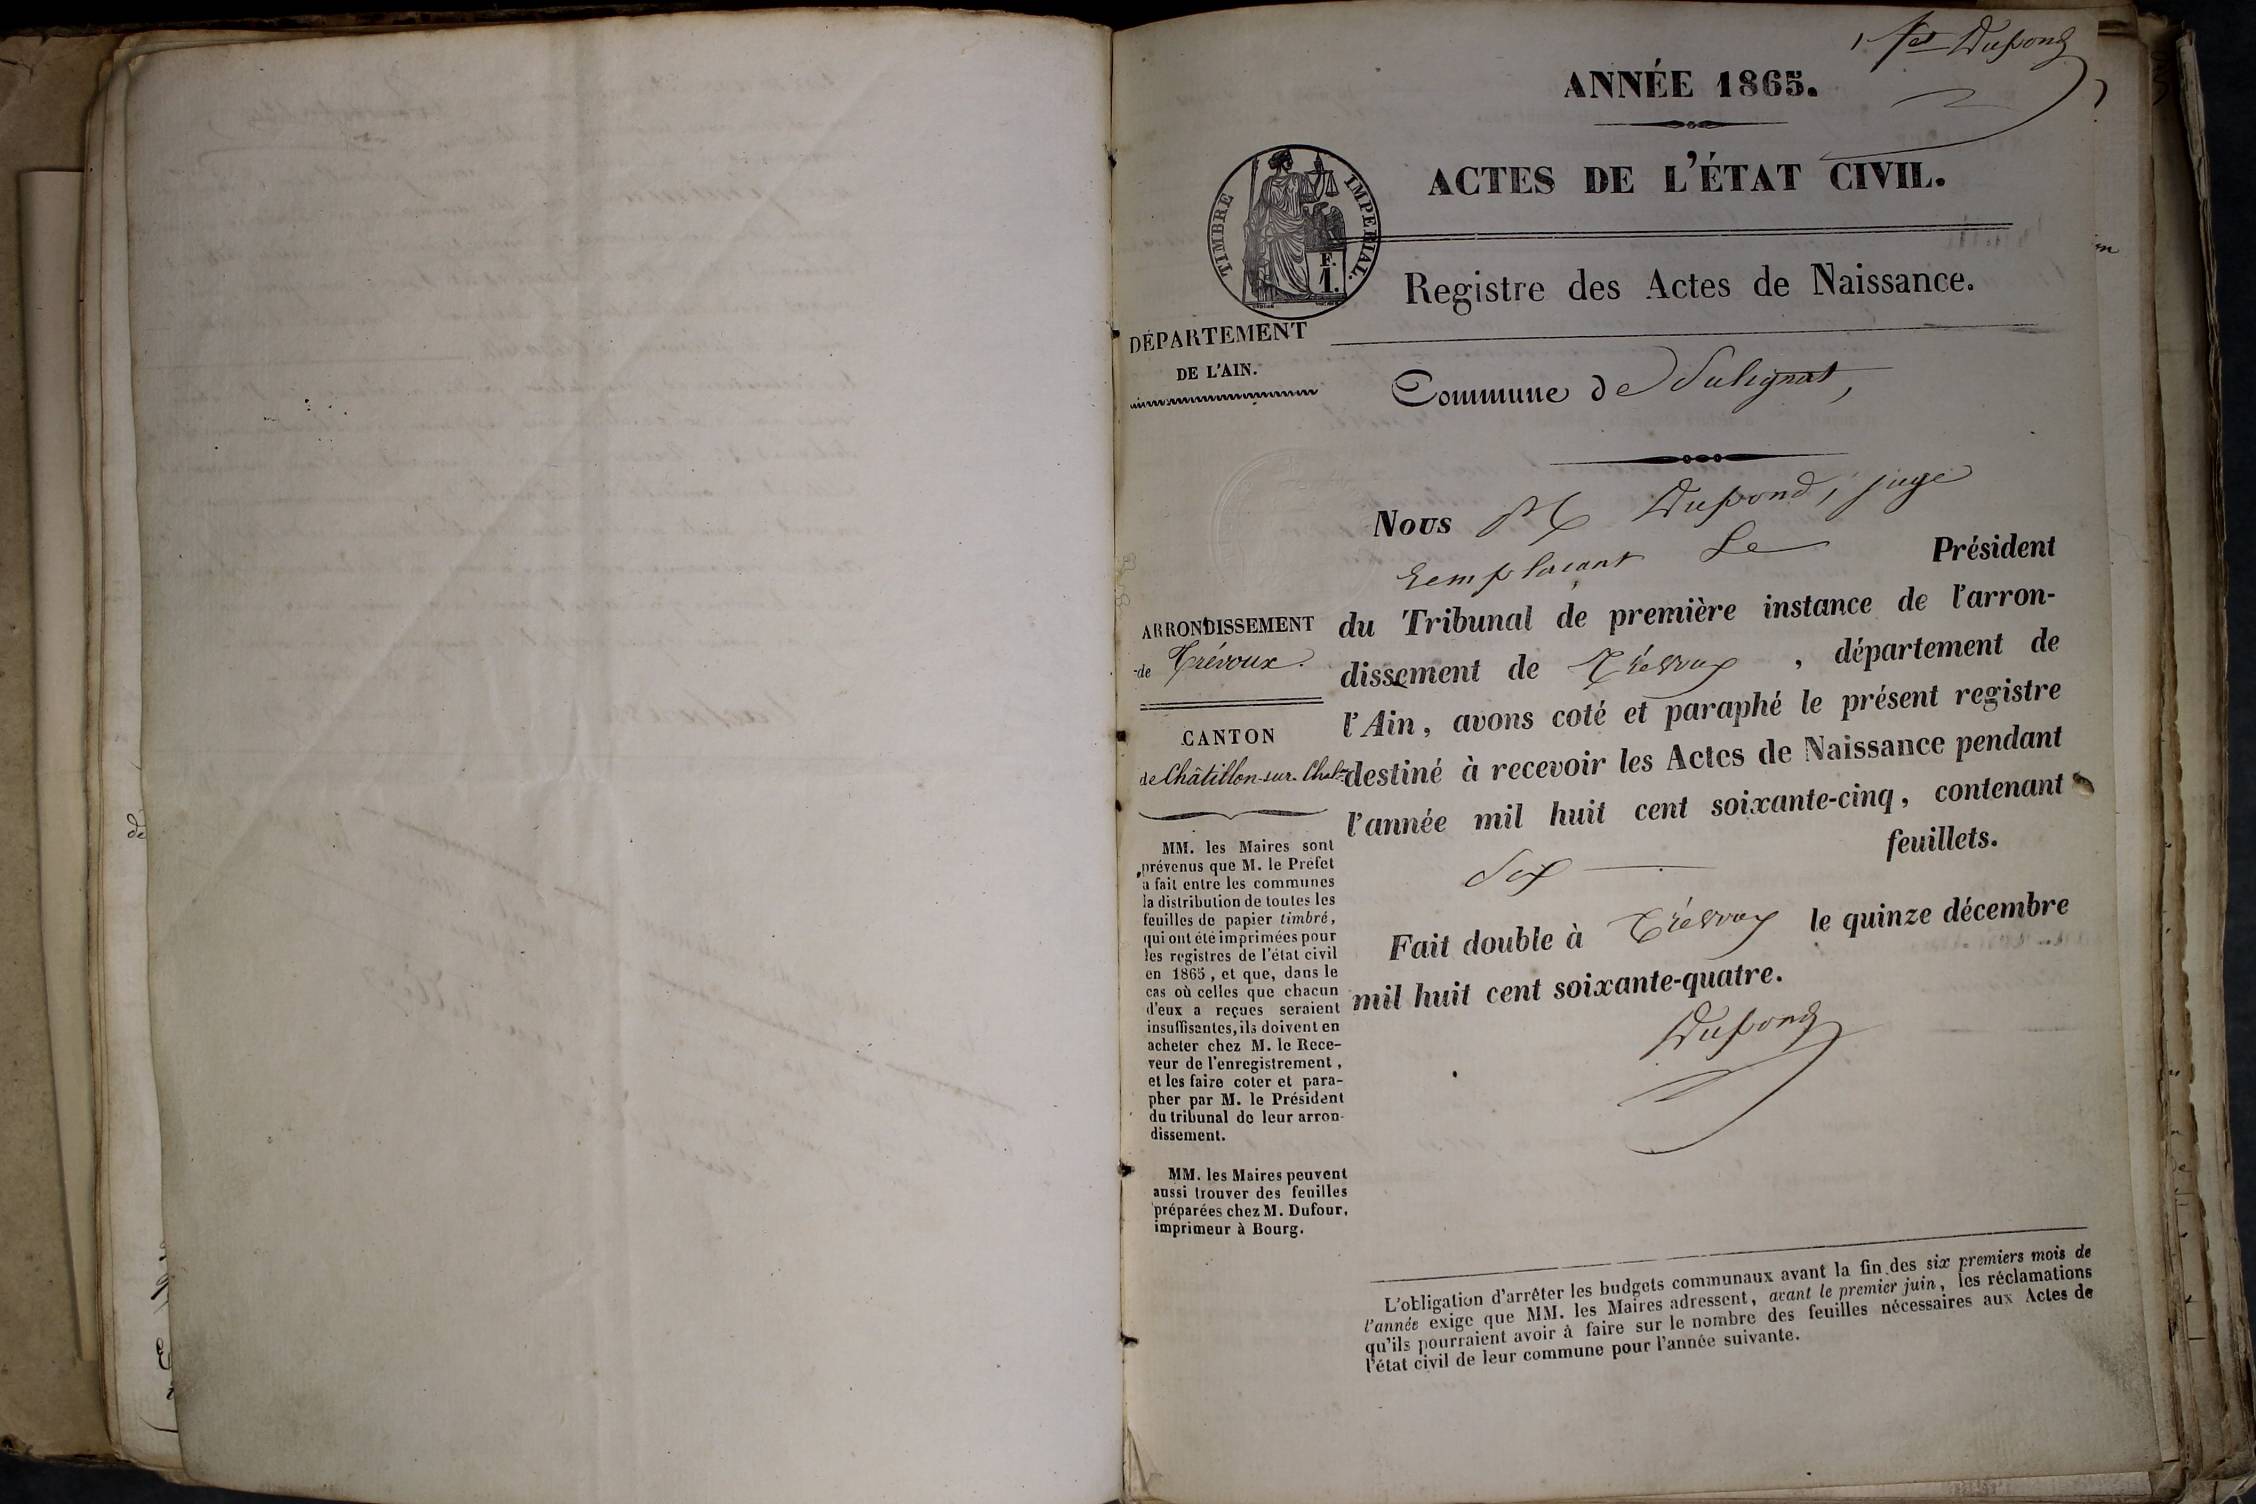 1 fet Dupond
ANNÉE 1865.
ACTES DE L'ÉTAT CIVIL.
TIMBRE IMPERIAL.
F.
1.
Registre des Actes de Naissance.
DÉPARTEMENT
DE L'AIN.
Commune de Sulignat,
Nous M Dupond, juge
remplaçant Le Président
du Tribunal de première instance de l'arron-
dissement de Trévoux, département de
l'Ain, avons coté et paraphé le présent registre
destiné à recevoir les Actes de Naissance pendant
l'année mil huit cent soixante-cinq, contenant
Six feuillets.
Fait double à Trévoux le quinze décembre
mil huit cent soixante-quatre.
Dupond
ARRONDISSEMENT
de Trévoux.
CANTON
de Châtillon-sur-Chalne
MM. les Maires sont
prévenus que M. le Préfet
a fait entre les communes
la distribution de toutes les
feuilles de papier timbré,
qui ont été imprimées pour
les registres de l'état civil
en 1865, et que, dans le
cas où celles que chacun
d'eux a reçues seraient
insuffisantes, ils doivent en
acheter chez M. le Rece-
veur de l'enregistrement,
et les faire coter et para-
pher par M. le Président
du tribunal de leur arron-
dissement.
MM. les Maires peuvent
aussi trouver des feuilles
préparées chez M. Dufour,
imprimeur à Bourg.
L'obligation d'arrêter les budgets communaux avant la fin des six premiers mois de
l'année exige que MM. les Maires adressent, avant le premier juin, les réclamations
qu'ils pourraient avoir à faire sur le nombre des feuilles nécessaires aux Actes de
l'état civil de leur commune pour l'année suivante.